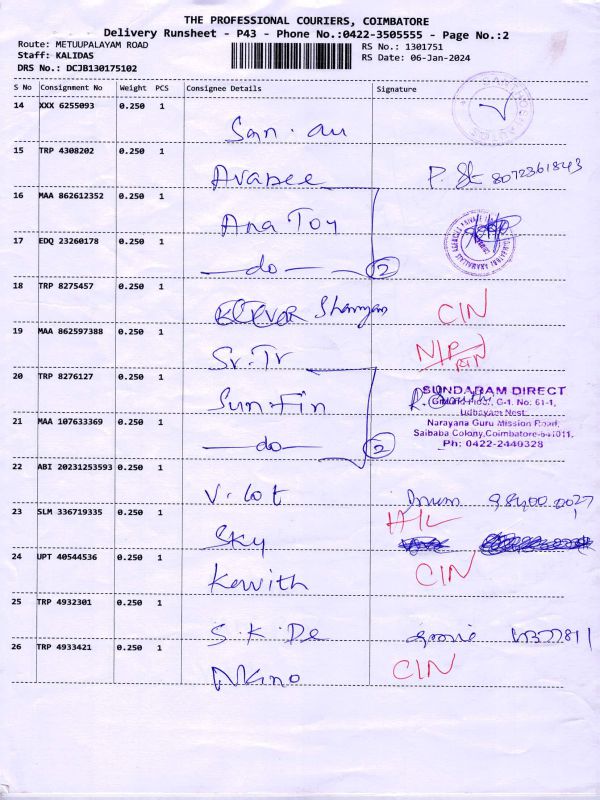 THE PROFESSIONAL COURIERS, COIMBATORE
Delivery Runsheet - P43 - Phone No.:0422-3505555 - Page No.:2
Route: METUUPALAYAM ROAD
RS No.: 1301751
Staff: KALIDAS
RS Date: 06-Jan-2024
DRS No.: DCJB130175102
S No Consignment No Weight PCS Consignee Details Signature
14 XXX 6255093 0.250 1
San. au
15 TRP 4308202 0.250 1
Avabee 8072361843
16 MAA 862612352 0.250 1
Ana Toy
17 EDQ 23260178 0.250 1
do 2
18 TRP 8275457 0.250 1
CIN
19 MAA 862597388 0.250 1
Sr. Tr
20 TRP 8276127 0.250 1
Sun Fin
SUNDARAM DIRECT
Ground Floor, C-1, No: 61-1,
Udbayam Nest,
21 MAA 107633369 0.250 1
Narayana Guru Mission Road,
Saibaba Colony, Coimbatore-641011.
do 2
Ph: 0422-2449328
22 ABI 20231253593 0.250 1
V. lot
23 SLM 336719335 0.250 1
Sky
24 UPT 40544536 0.250 1
CIN
Kawith
25 TRP 4932301 0.250 1
S. K. De
26 TRP 4933421 0.250 1
CIN